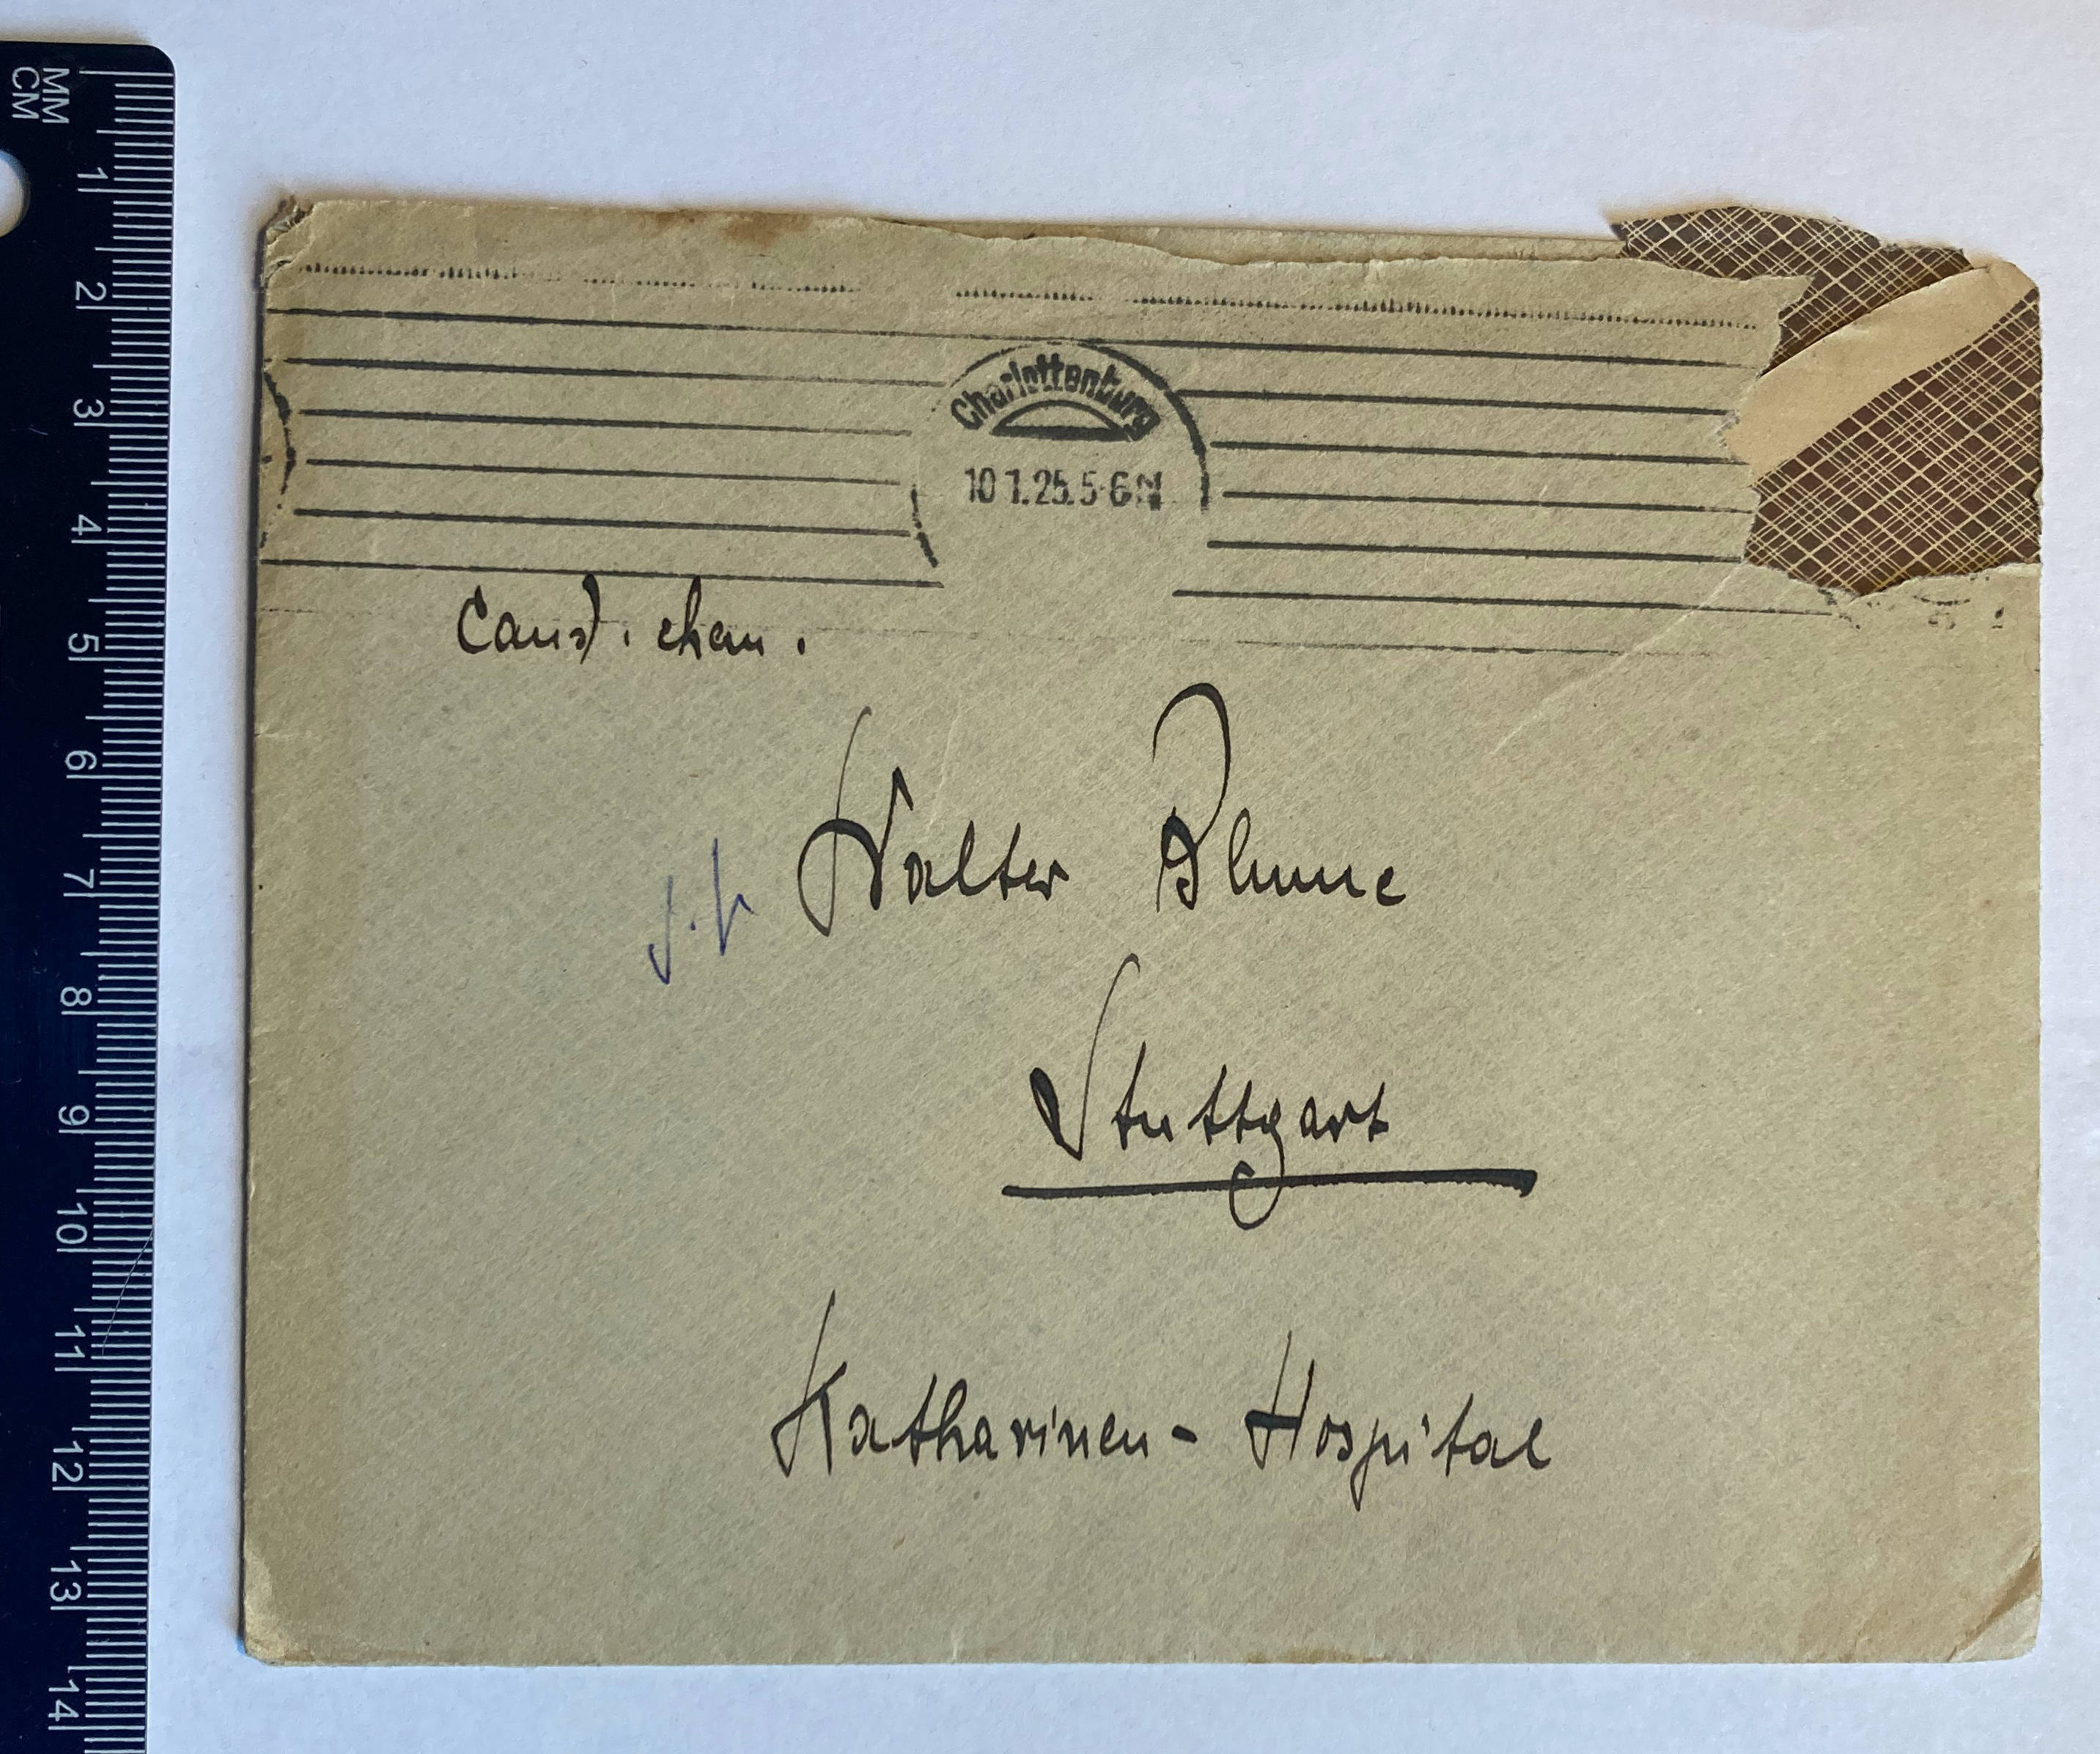 MM
CM
1
2
3
4
5
6
7
8
9
10
11
12
13
14
Charlottenburg
10 1.25. 5-6 N
Cand. chem.
Walter Blume
Stuttgart
Katharinen-Hospital